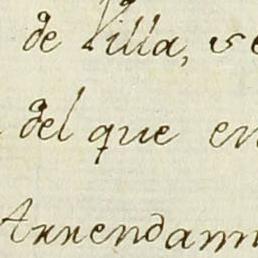 de Villa, se
del que en
Arrendam